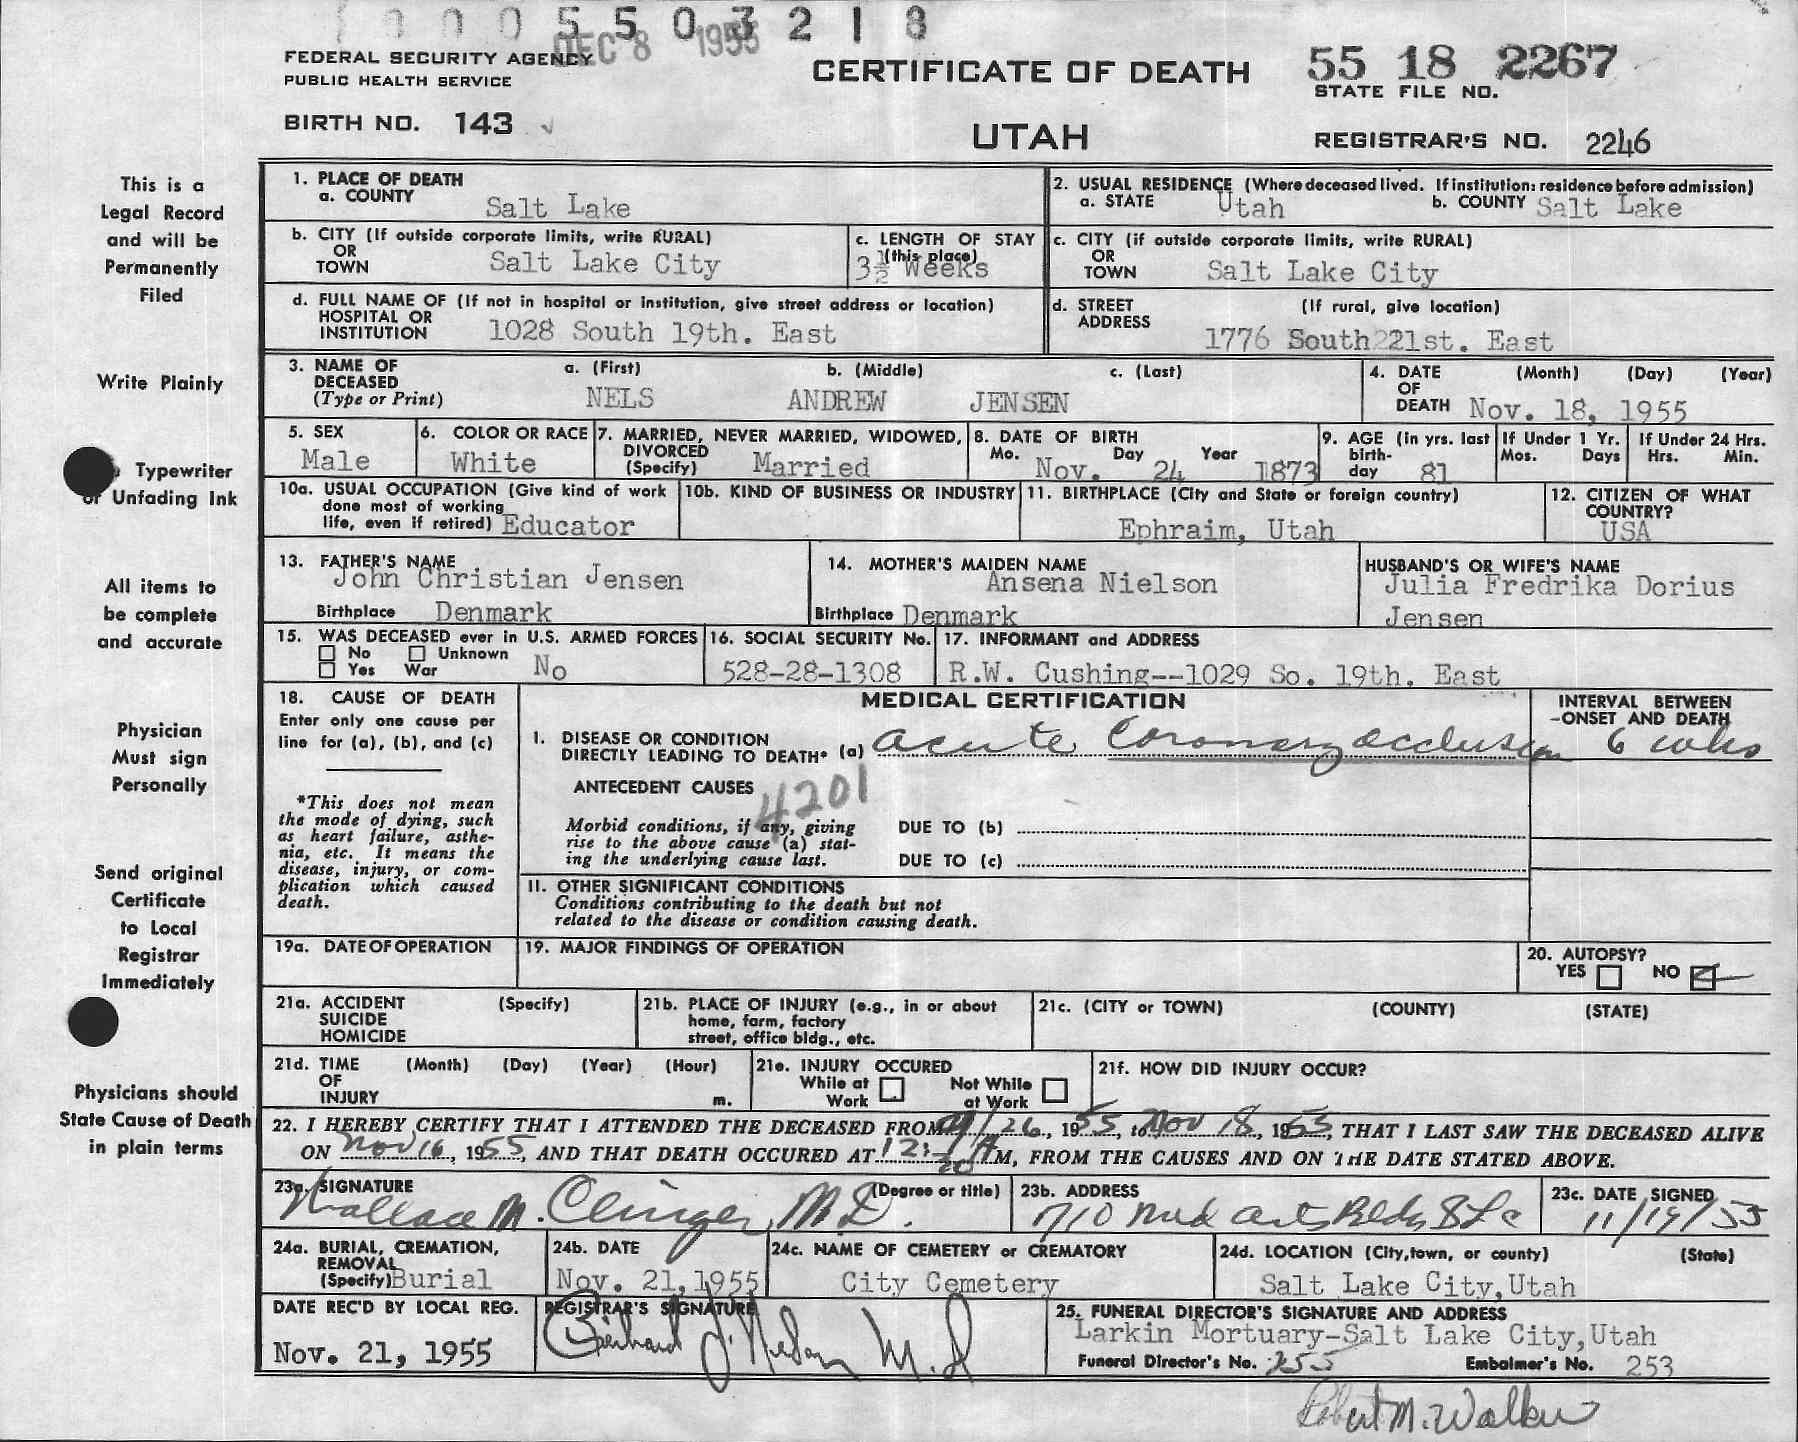 0005503218
DEC 8 1955
FEDERAL SECURITY AGENCY
PUBLIC HEALTH SERVICE
CERTIFICATE OF DEATH
55 18 2267
STATE FILE NO.
BIRTH NO. 143
UTAH
REGISTRAR'S NO. 2246
This is a
Legal Record
and will be
Permanently
Filed
Write Plainly
Typewriter
or Unfading Ink
All items to
be complete
and accurate
Physician
Must sign
Personally
Send original
Certificate
to Local
Registrar
Immediately
Physicians should
State Cause of Death
in plain terms
1. PLACE OF DEATH
a. COUNTY Salt Lake
2. USUAL RESIDENCE (Where deceased lived. If institution: residence before admission)
a. STATE Utah b. COUNTY Salt Lake
b. CITY (If outside corporate limits, write RURAL)
OR
TOWN Salt Lake City
c. LENGTH OF STAY
(this place)
3½ Weeks
c. CITY (if outside corporate limits, write RURAL)
OR
TOWN Salt Lake City
d. FULL NAME OF (If not in hospital or institution, give street address or location)
HOSPITAL OR
INSTITUTION 1028 South 19th. East
d. STREET (If rural, give location)
ADDRESS 1776 South 21st. East
3. NAME OF a. (First) b. (Middle) c. (Last)
DECEASED
(Type or Print) NELS ANDREW JENSEN
4. DATE (Month) (Day) (Year)
OF
DEATH Nov. 18, 1955
5. SEX
Male
6. COLOR OR RACE
White
7. MARRIED, NEVER MARRIED, WIDOWED,
DIVORCED
(Specify) Married
8. DATE OF BIRTH
Mo. Day Year
Nov. 24 1873
9. AGE (in yrs. last
birth-
day 81
If Under 1 Yr.
Mos. Days
If Under 24 Hrs.
Hrs. Min.
10a. USUAL OCCUPATION (Give kind of work
done most of working
life, even if retired) Educator
10b. KIND OF BUSINESS OR INDUSTRY
11. BIRTHPLACE (City and State or foreign country)
Ephraim, Utah
12. CITIZEN OF WHAT
COUNTRY?
USA
13. FATHER'S NAME
John Christian Jensen
Birthplace Denmark
14. MOTHER'S MAIDEN NAME
Ansena Nielson
Birthplace Denmark
HUSBAND'S OR WIFE'S NAME
Julia Fredrika Dorius
Jensen
15. WAS DECEASED ever in U.S. ARMED FORCES
No Unknown
Yes War No
16. SOCIAL SECURITY No.
528-28-1308
17. INFORMANT and ADDRESS
R.W. Cushing--1029 So. 19th. East
18. CAUSE OF DEATH
Enter only one cause per
line for (a), (b), and (c)
*This does not mean
the mode of dying, such
as heart failure, asthe-
nia, etc. It means the
disease, injury, or com-
plication which caused
death.
MEDICAL CERTIFICATION
INTERVAL BETWEEN
-ONSET AND DEATH
I. DISEASE OR CONDITION
DIRECTLY LEADING TO DEATH* (a) acute Coronary occlusion 6 wks
ANTECEDENT CAUSES
4201
Morbid conditions, if any, giving
rise to the above cause (a) stat-
ing the underlying cause last.
DUE TO (b)
DUE TO (c)
II. OTHER SIGNIFICANT CONDITIONS
Conditions contributing to the death but not
related to the disease or condition causing death.
19a. DATE OF OPERATION
19. MAJOR FINDINGS OF OPERATION
20. AUTOPSY?
YES NO
21a. ACCIDENT (Specify)
SUICIDE
HOMICIDE
21b. PLACE OF INJURY (e.g., in or about
home, farm, factory
street, office bldg., etc.
21c. (CITY or TOWN) (COUNTY) (STATE)
21d. TIME (Month) (Day) (Year) (Hour)
OF
INJURY m.
21e. INJURY OCCURED
While at Work Not While at Work
21f. HOW DID INJURY OCCUR?
22. I HEREBY CERTIFY THAT I ATTENDED THE DECEASED FROM /26, 1955, to Nov 18, 1955, THAT I LAST SAW THE DECEASED ALIVE
ON Nov 16, 1955, AND THAT DEATH OCCURED AT 12:20 AM, FROM THE CAUSES AND ON THE DATE STATED ABOVE.
23a. SIGNATURE (Degree or title)
Wallace M. Clinger, M.D.
23b. ADDRESS
710 Med Arts Bldg SLC
23c. DATE SIGNED
11/19/55
24a. BURIAL, CREMATION,
REMOVAL
(Specify) Burial
24b. DATE
Nov. 21, 1955
24c. NAME OF CEMETERY or CREMATORY
City Cemetery
24d. LOCATION (City, town, or county) (State)
Salt Lake City, Utah
DATE REC'D BY LOCAL REG.
Nov. 21, 1955
REGISTRAR'S SIGNATURE
M.D.
25. FUNERAL DIRECTOR'S SIGNATURE AND ADDRESS
Larkin Mortuary-Salt Lake City, Utah
Funeral Director's No. 255 Embalmer's No. 253
Robert M. Walker